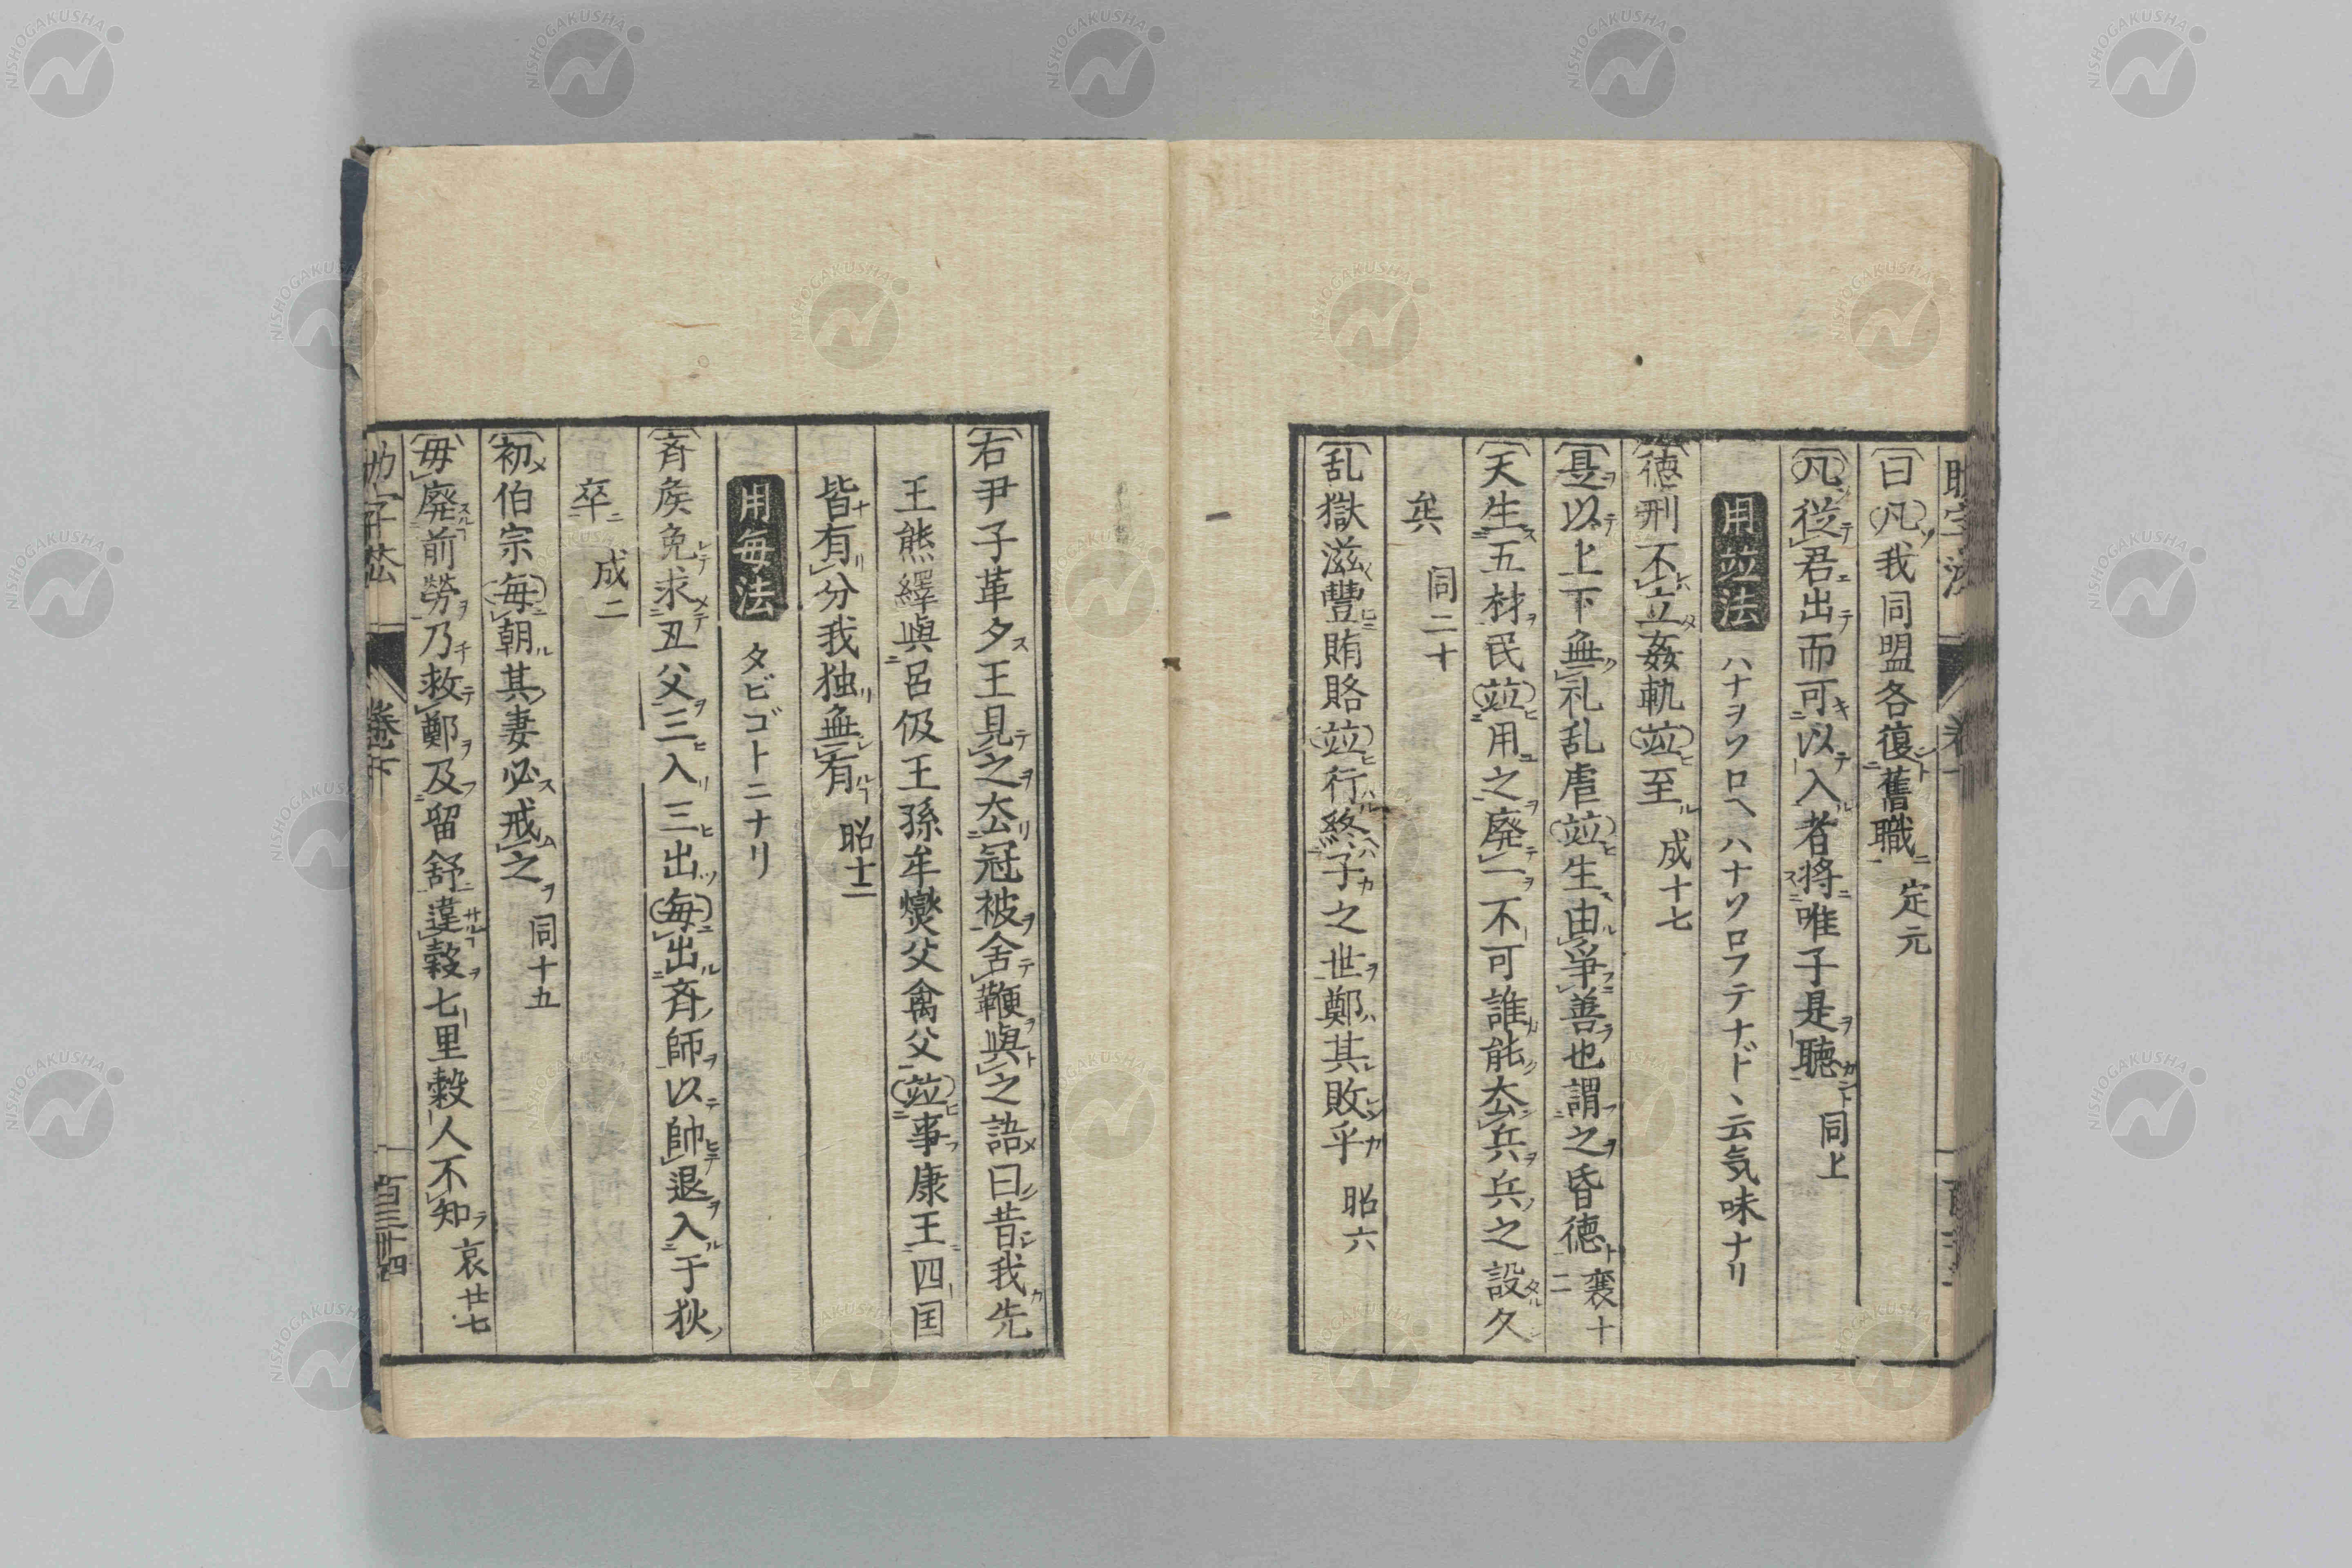 曰凡我同盟各復舊職 定元
凡從君出而可以入者将唯子是聴 同上
用竝法 ハナヲソロヘハナソロフテナド丶云気味ナリ
徳刑不立姦軌竝至 成十七
是以上下無礼乱虐竝生由爭善也謂之昏徳 襄十二
天生五材民竝用之廃一不可誰能去兵兵之設久
矣 同二十
乱獄滋豐賄賂竝行終子之世鄭其敗乎 昭六
右尹子革夕王見之去冠被舍鞭與之語曰昔我先
王熊繹與呂伋王孫牟燮父禽父竝事康王四国
皆有分我独無有 昭十二
用毎法 タビゴトニナリ
斉矦免求丑父三入三出毎出斉師以帥退入于狄
卒 成二
初伯宗毎朝其妻必戒之 同十五
毋廃前勞乃救鄭及留舒違穀七里穀人不知 哀廿七
巻下
百三十四
NISHOGAKUSHA